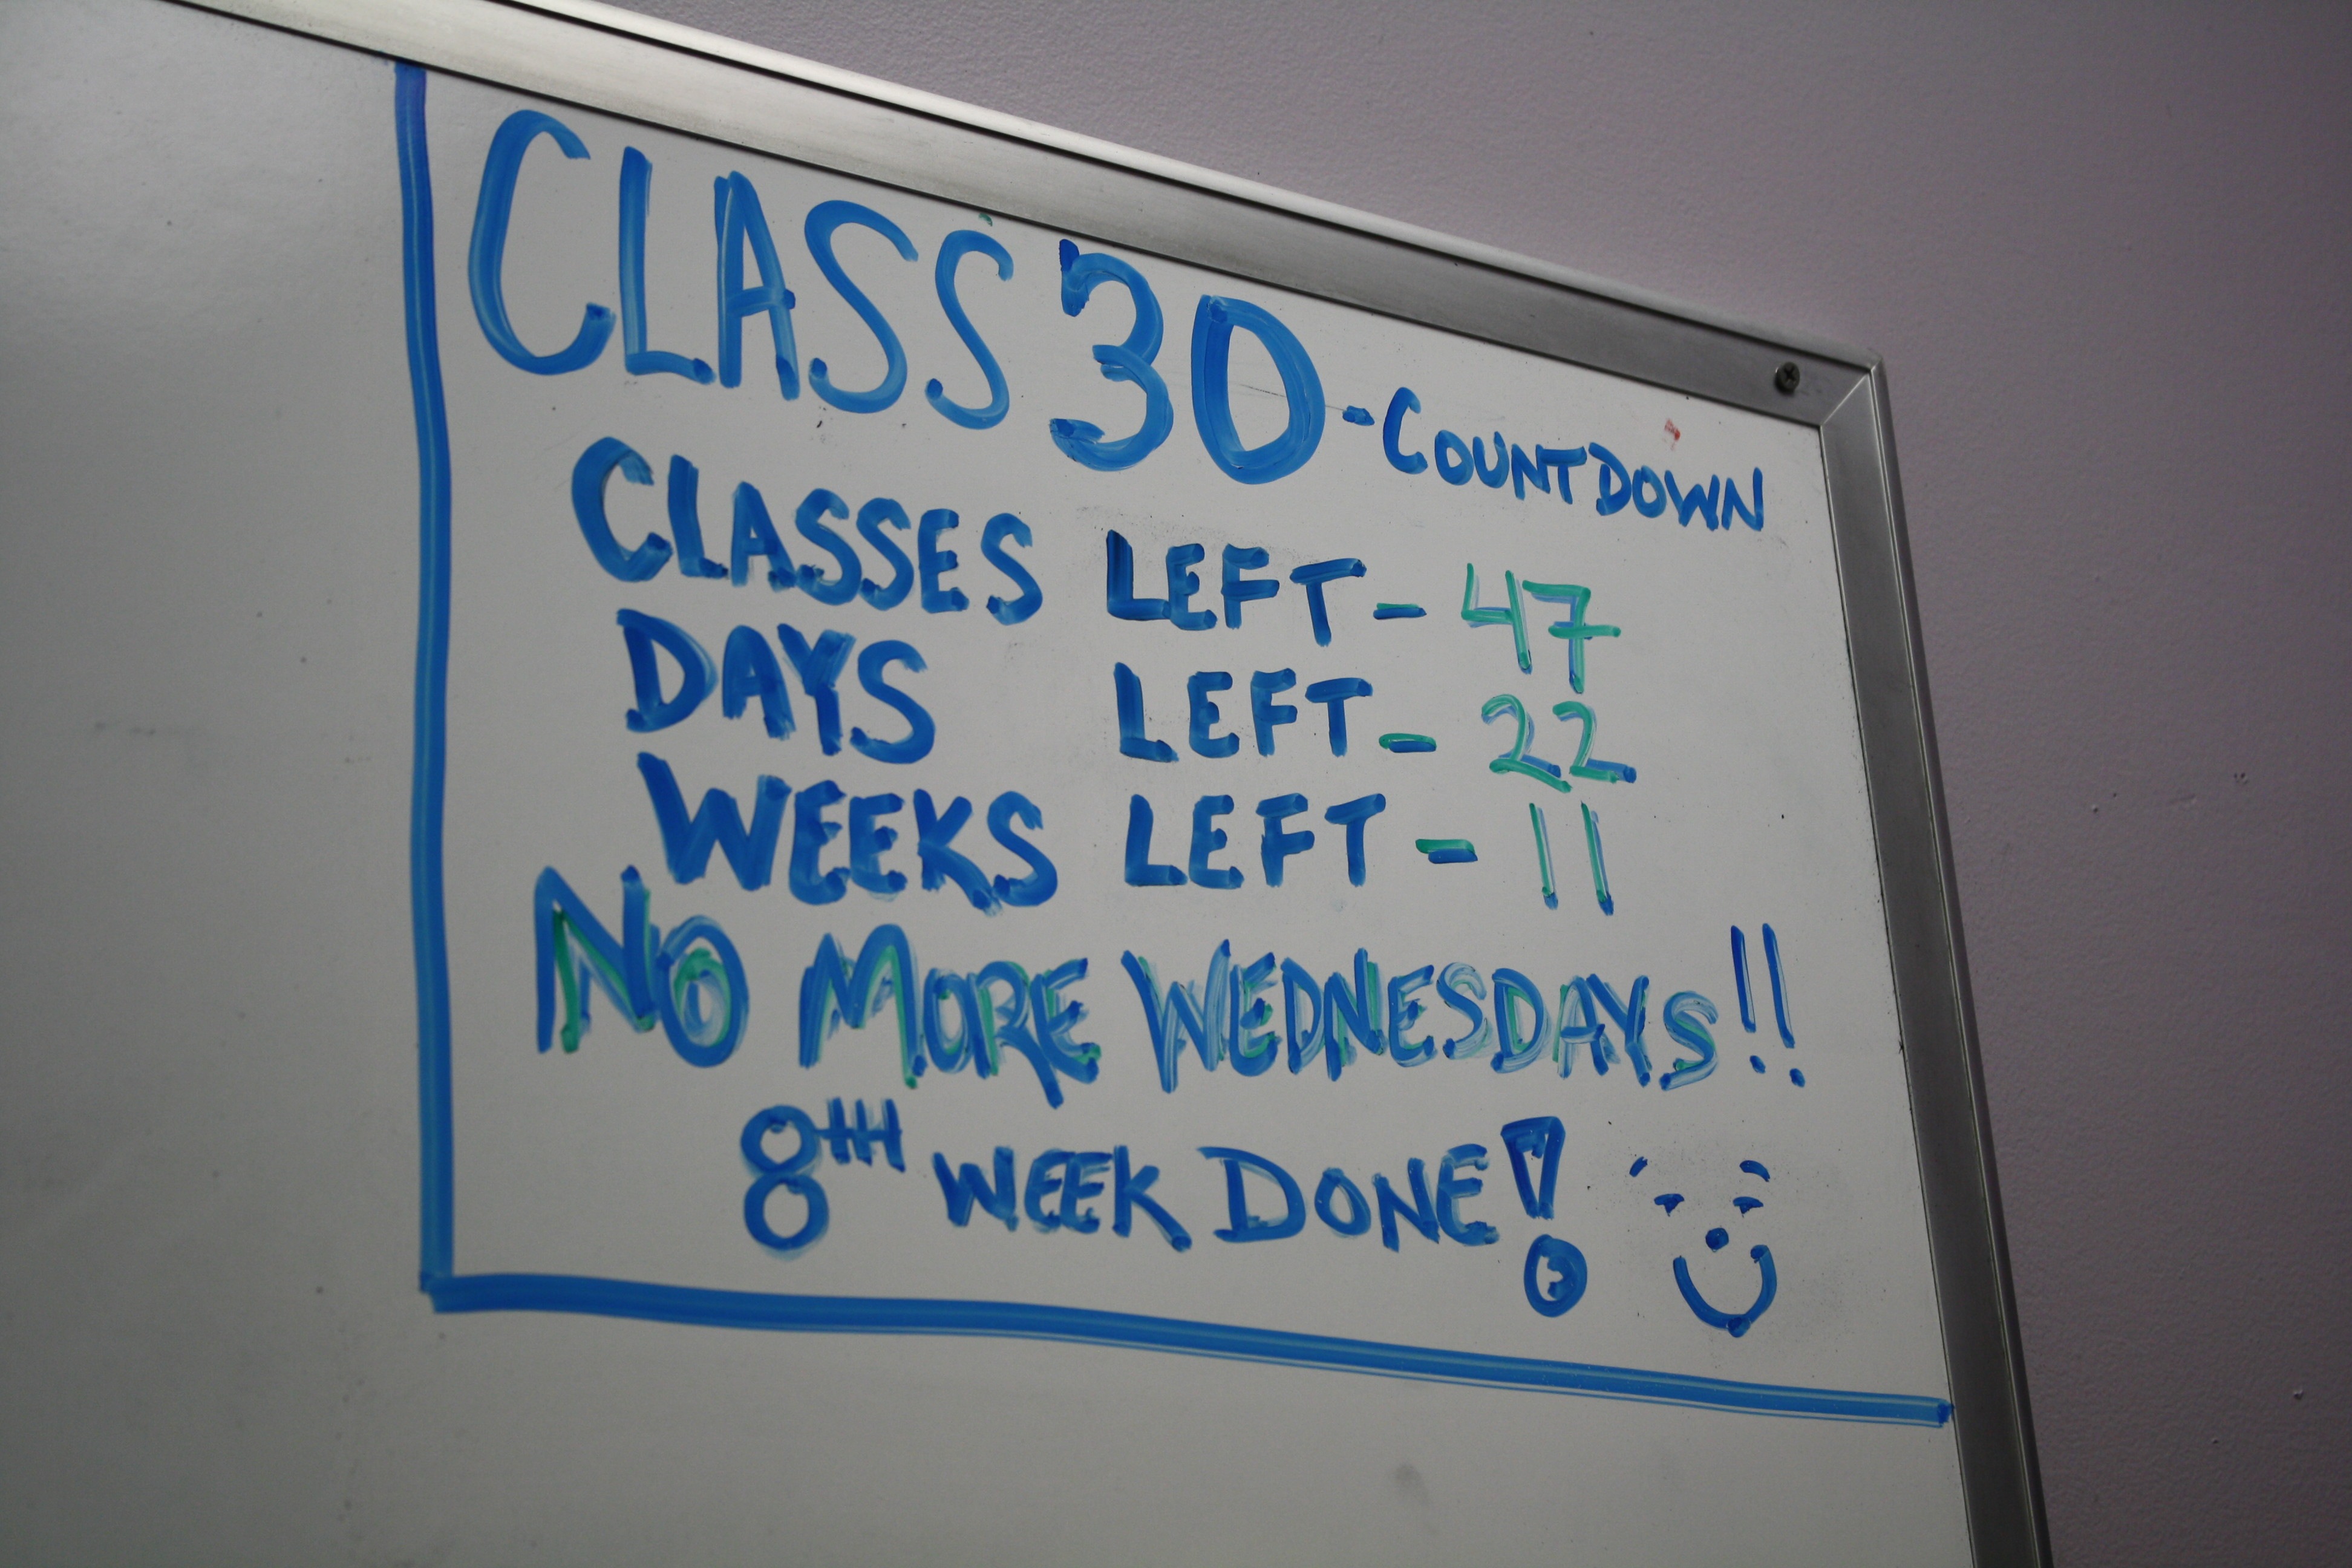 CLASS 30 - COUNTDOWN
CLASSES LEFT - 47
DAYS LEFT - 22
WEEKS LEFT - 11
NO MORE WEDNESDAYS!!
8TH WEEK DONE!